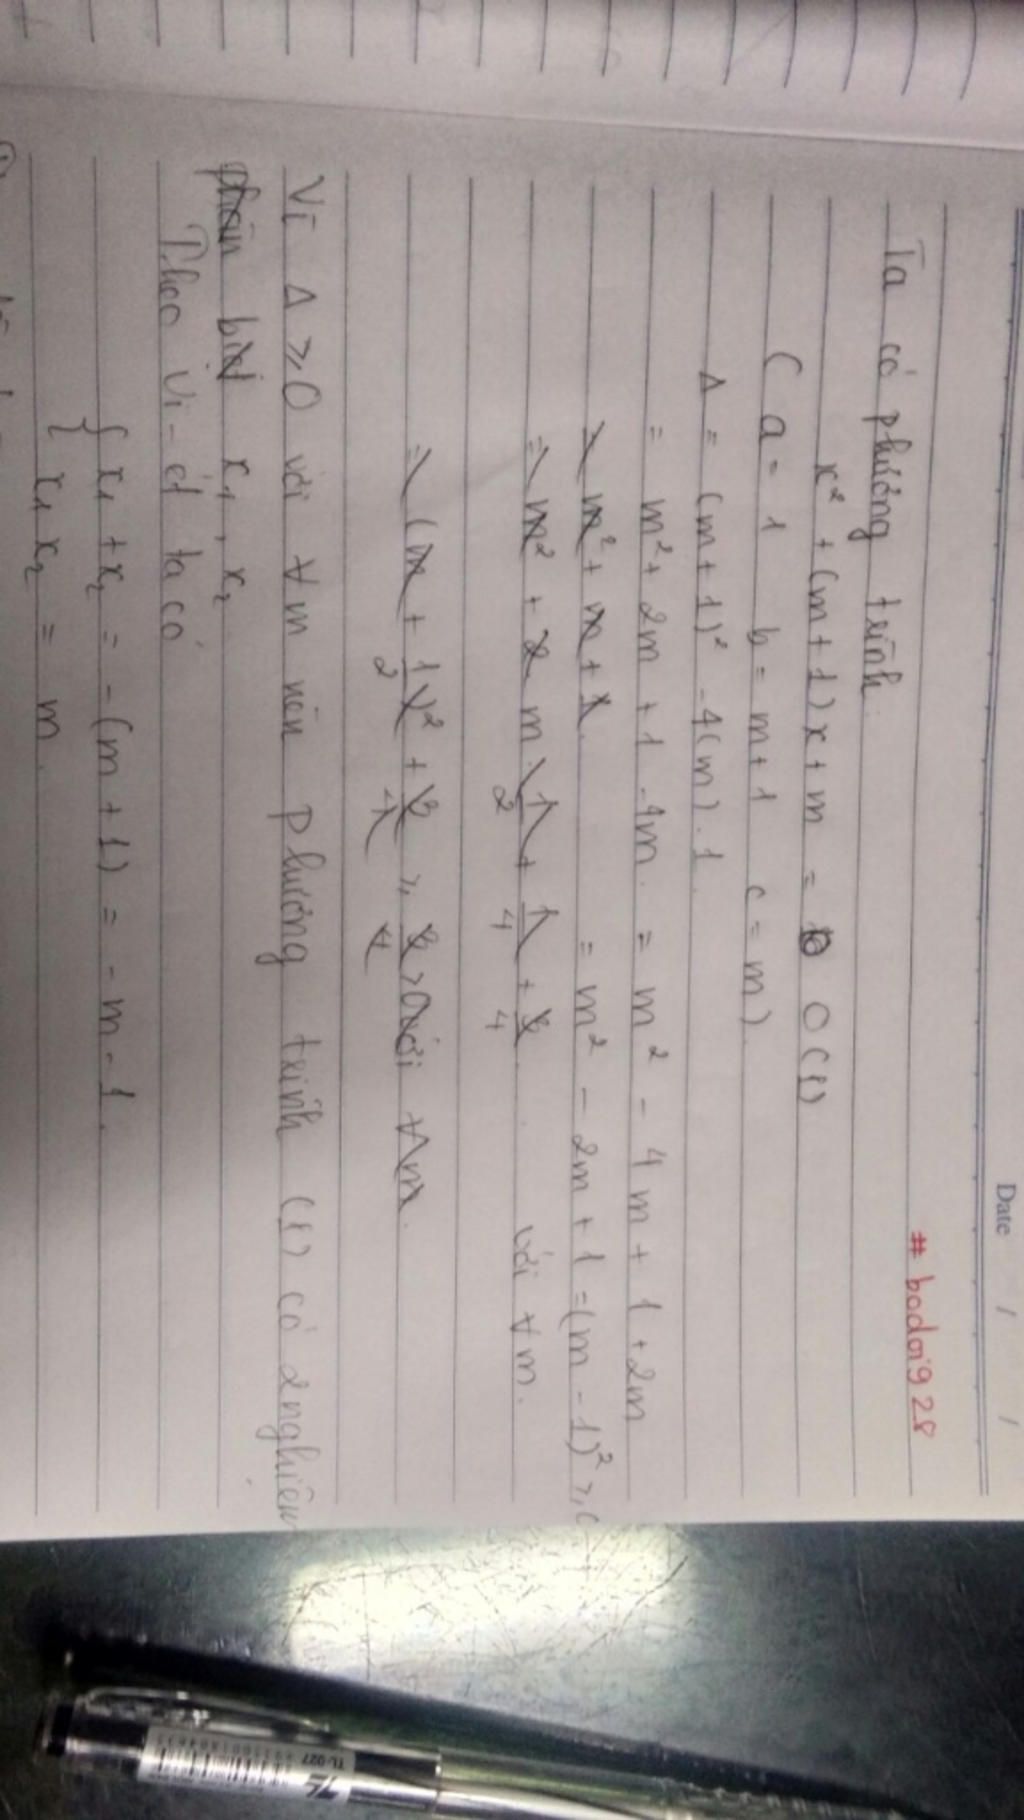 Date / /
# bodoi928
Ta có phương trình:
x² + (m+1)x + m = 0 (1)
( a = 1 b = m+1 c = m)
Δ = (m+1)² - 4(m).1
= m² + 2m + 1 - 4m. = m² - 4m + 1 + 2m
m² + m + 1. = m² - 2m + 1 = (m - 1)² ≥
= m² + 2 m . 1/2 + 1/4 + 3/4 với ∀m.
= (m + 1/2)² + 3/4 ≥ 3/4 > 0 với ∀m.
Vì Δ ≥ 0 với ∀m nên phương trình (1) có 2 nghiệm
phân biệt x₁, x₂
Theo Vi-ét ta có
{ x₁ + x₂ = - (m + 1) = - m - 1.
{ x₁ x₂ = m.
TL-027